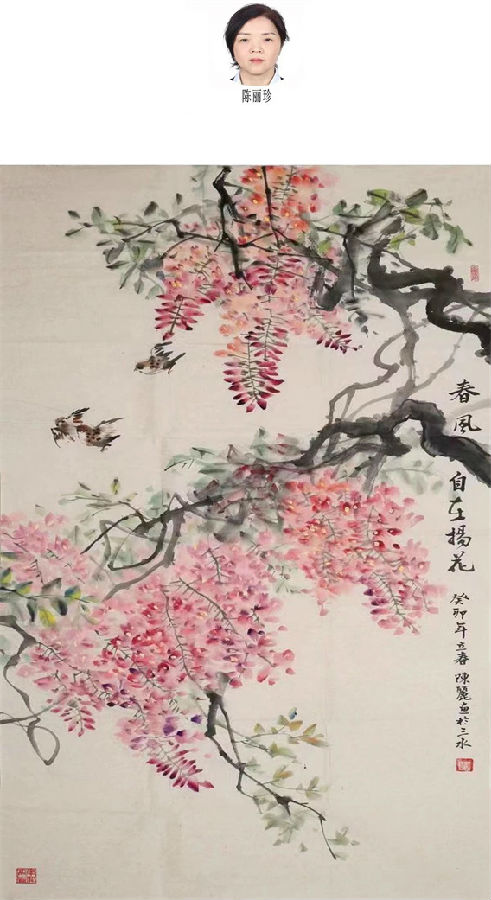 陈丽珍
春風自在揚花
癸卯年立春陳麗画於三水